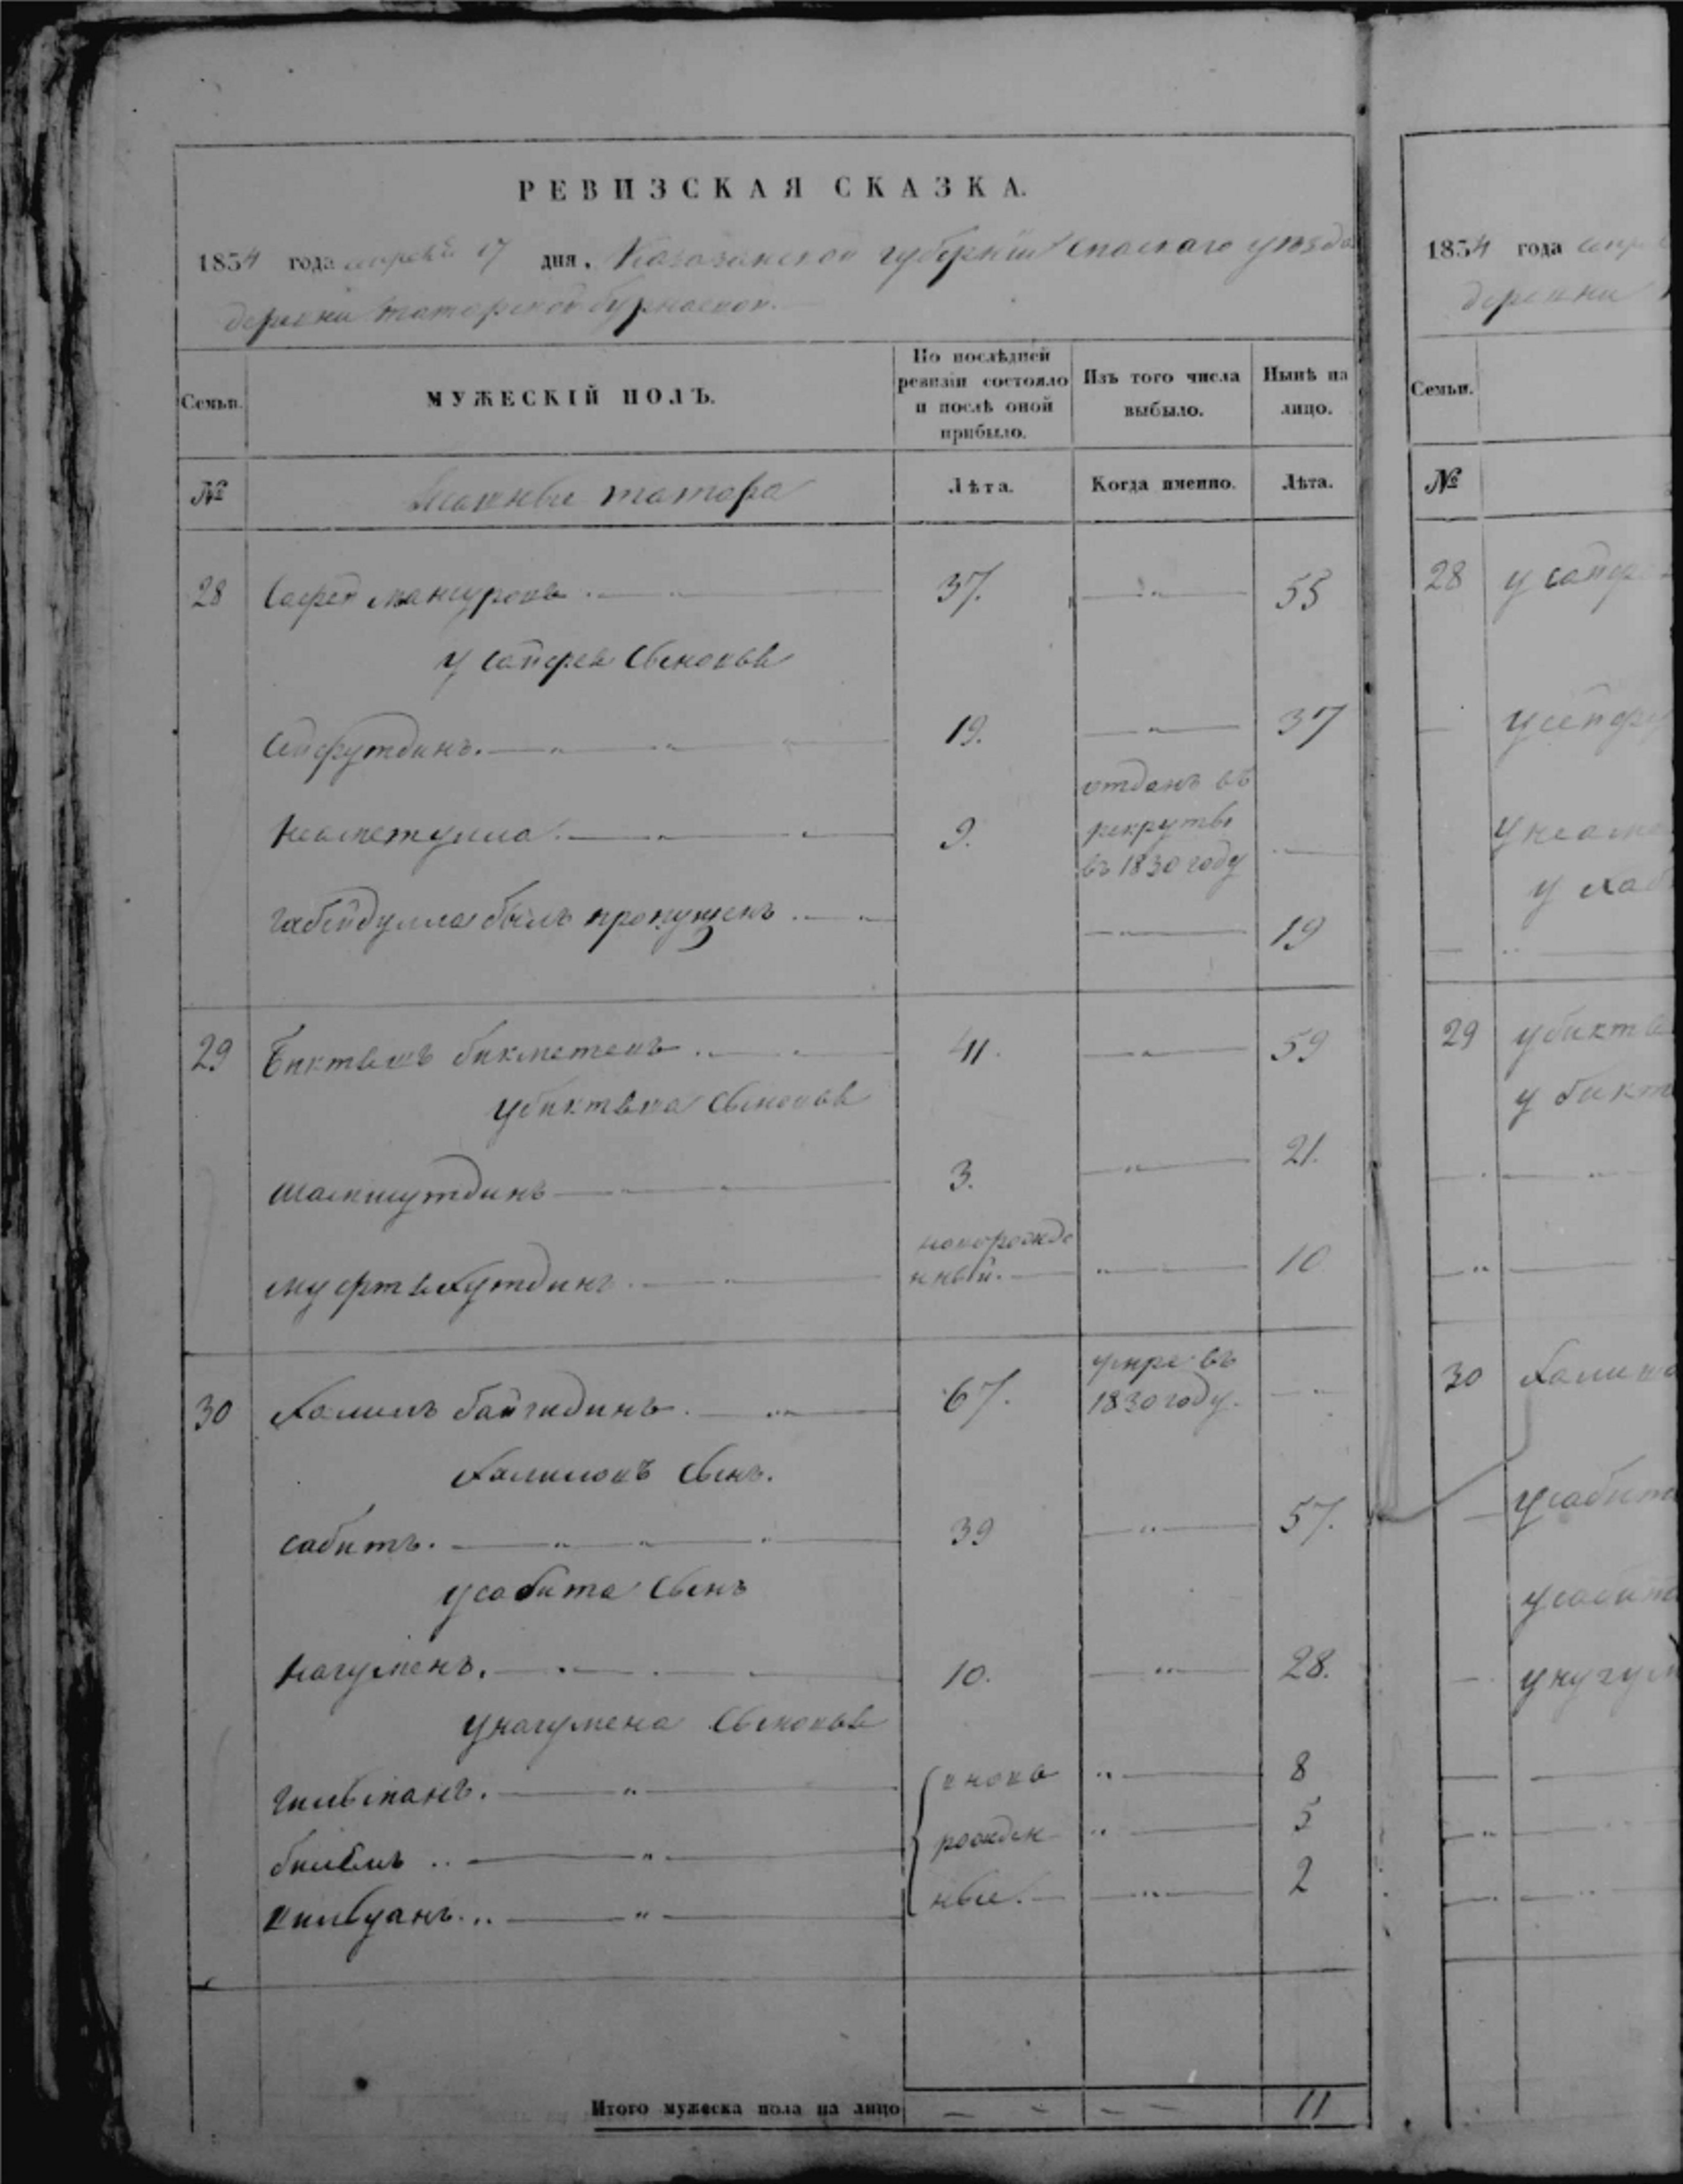 РЕВИЗСКАЯ СКАЗКА.
1834 года апреля 17 дня. Казазанской губернiи спаского уѣзда
деревни татарской бурнаевой.
Семьи.
МУЖЕСКІЙ ПОЛЪ.
По послѣдней ревизіи состояло и послѣ оной прибыло.
Изъ того числа выбыло.
Нынѣ на лицо.
№
татара
Лѣта.
Когда именно.
Лѣта.
28 Сафей мансуровъ 37. 55
у сайфея сыновья
Сейфутдинъ. 19. 37
неаметулла 9. отданъ въ рекруты въ 1830 году
габейдулла былъ пропущенъ 19
29 Биктѣевъ бикметевъ 41. 59
убиктѣва сыновья
шамшутдинъ 3. 21.
муфтѣхутдинъ новорожде нный. 10
30 халилъ байгидинъ. 67. умре въ 1830 году.
халиловъ сынъ.
сабитъ. 39 57.
усабита сынъ
нагуменъ. 10. 28.
унагумена сыновья
гильманъ. внова 8
билѣлъ рожден 5
ные. 2
Итого мужеска пола на лицо 11
1834 года
деревни
Семьи.
№
28
29
у бикт
30
усабита
усабита